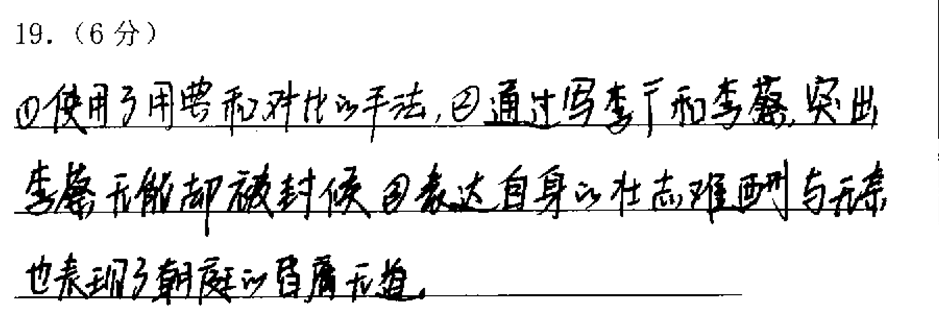 19.（6分）
①使用了用典和对比的手法,②通过写李广和李蔡,突出
李蔡无能却被封候③表达自身的壮志难酬与无奈
也表现了朝庭的昏庸无道。